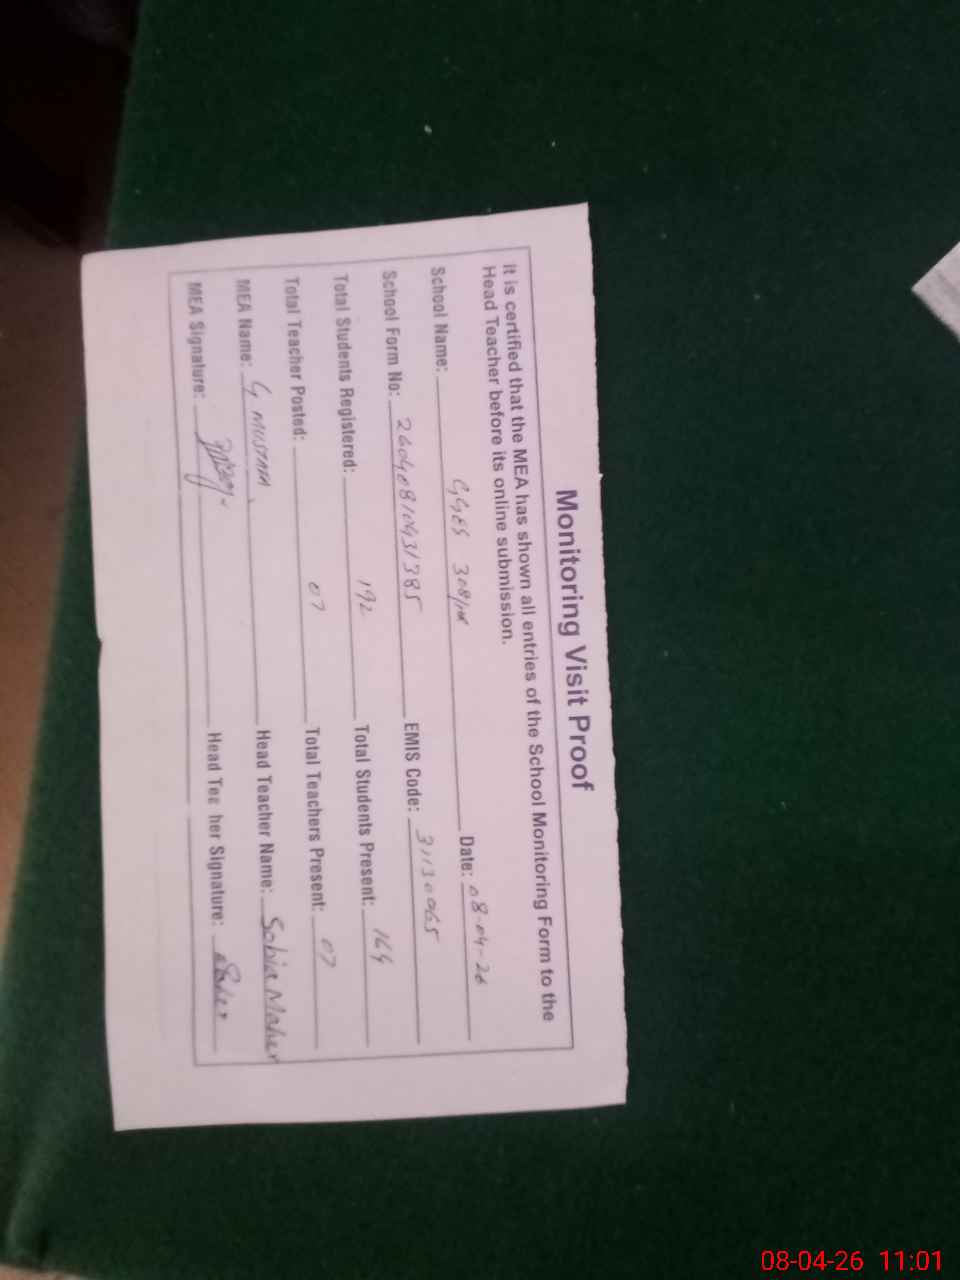 Monitoring Visit Proof
It is certified that the MEA has shown all entries of the School Monitoring Form to the
Head Teacher before its online submission.
School Name: GGES 308/HR Date: 08-04-26
School Form No: 26040810431385 EMIS Code: 31130065
Total Students Registered: 192 Total Students Present: 164
Total Teacher Posted: 07 Total Teachers Present: 07
MEA Name: G MUSTAFA Head Teacher Name: Sobia Maher
MEA Signature: Head Teacher Signature:
08-04-26 11:01